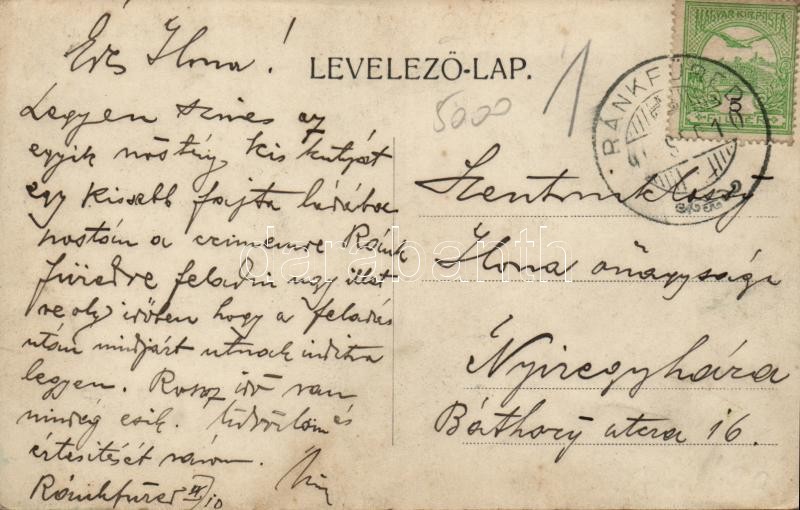 Édes Ilona!
LEVELEZŐ-LAP.
5000
1
MAGYAR KIR. POSTA
5
FILLÉR
RÁNKFÜRED
Legyen szives az
egyik nőstény kis kutyát
egy kissebb fajta ládába
postán a czimemre Ránk
füredre feladni ugy illet
ve oly időben hogy a feladás
után mindjárt utnak inditva
legyen. Rossz idő van
mindég esik. Üdvözlöm és
értesitését várom.
Ránkfüred
Szentmiklossy
Ilona őnagysága
Nyiregyháza
Báthory utcza 16.
darabanth